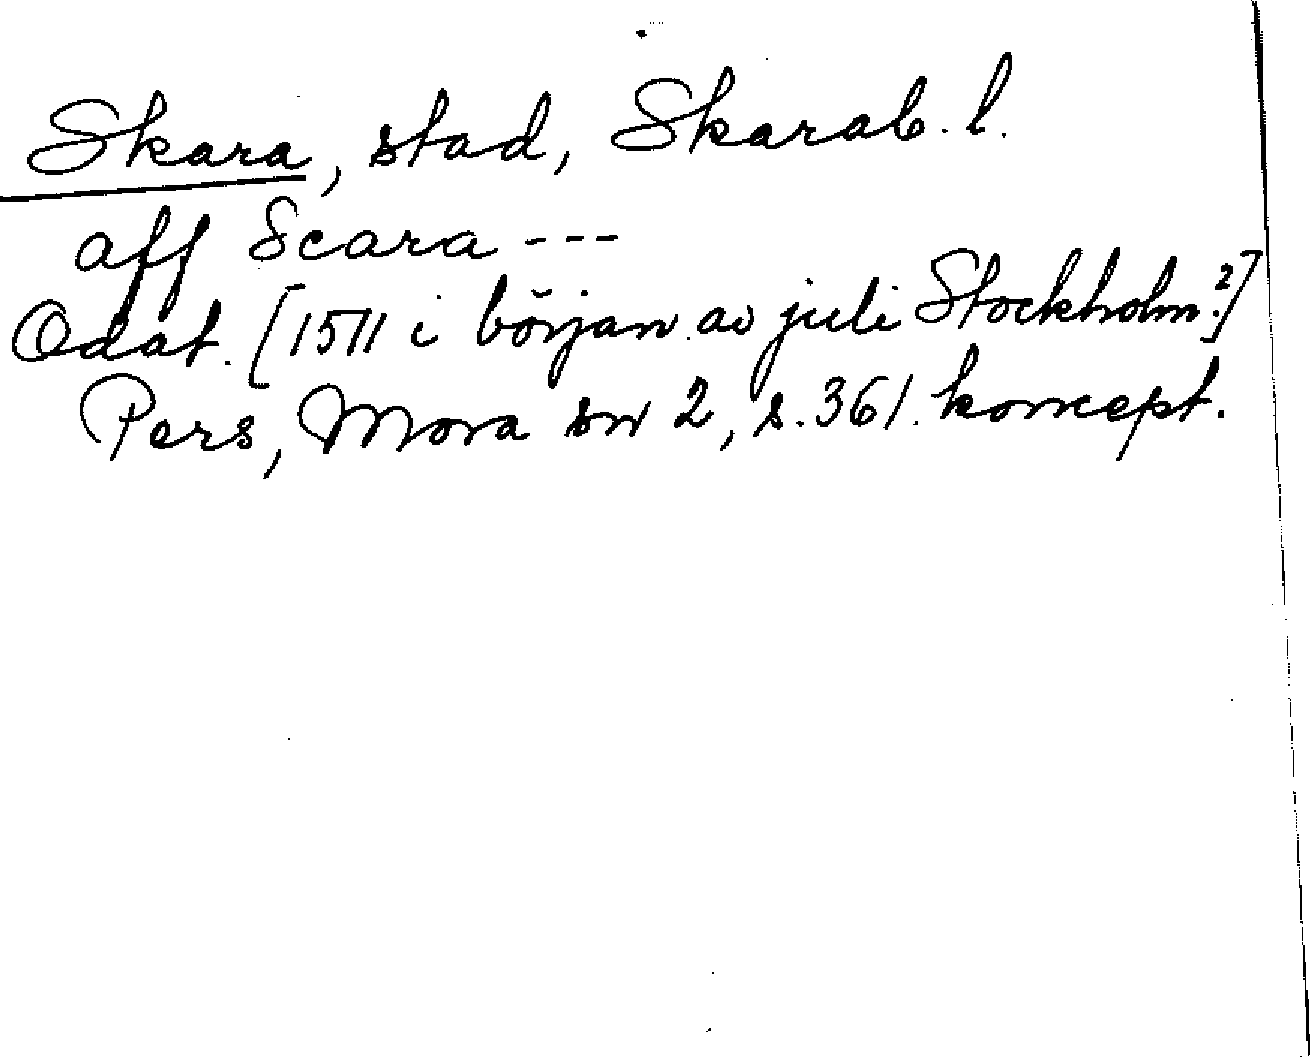 Skara, stad, Skarab. l.
aff Scara ---
Odat. [1511 i början av juli Stockholm?]
Pers, Mora sn 2, s. 361. koncept.